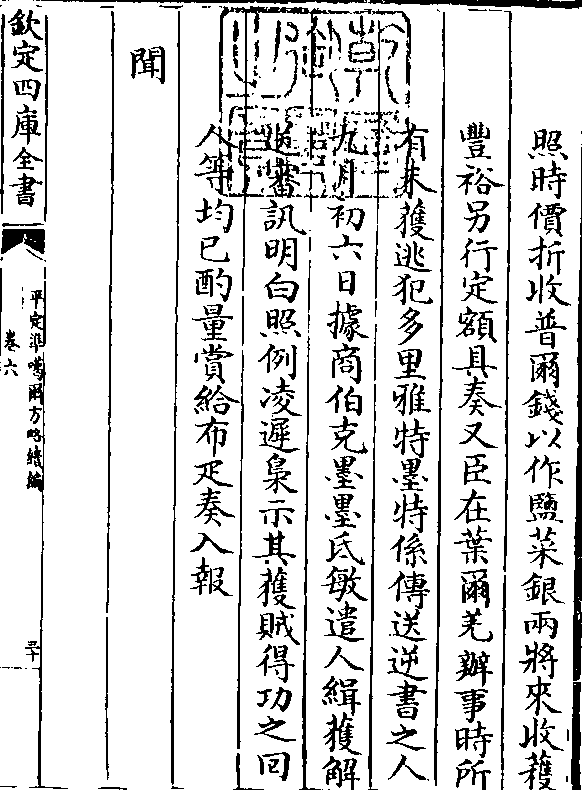 照時價折收普爾錢以作鹽菜銀兩將來收穫
豐裕另行定額具奏又臣在葉爾羌辦事時所
有未獲逃犯多里雅特墨特係傳送逆書之人
九月初六日據商伯克墨墨氐敏遣人緝獲解
送審訊明白照例凌遲梟示其獲賊得功之回
人等均已酌量賞給布疋奏入報
聞
欽定四庫全書
平定準噶爾方略續編
卷六